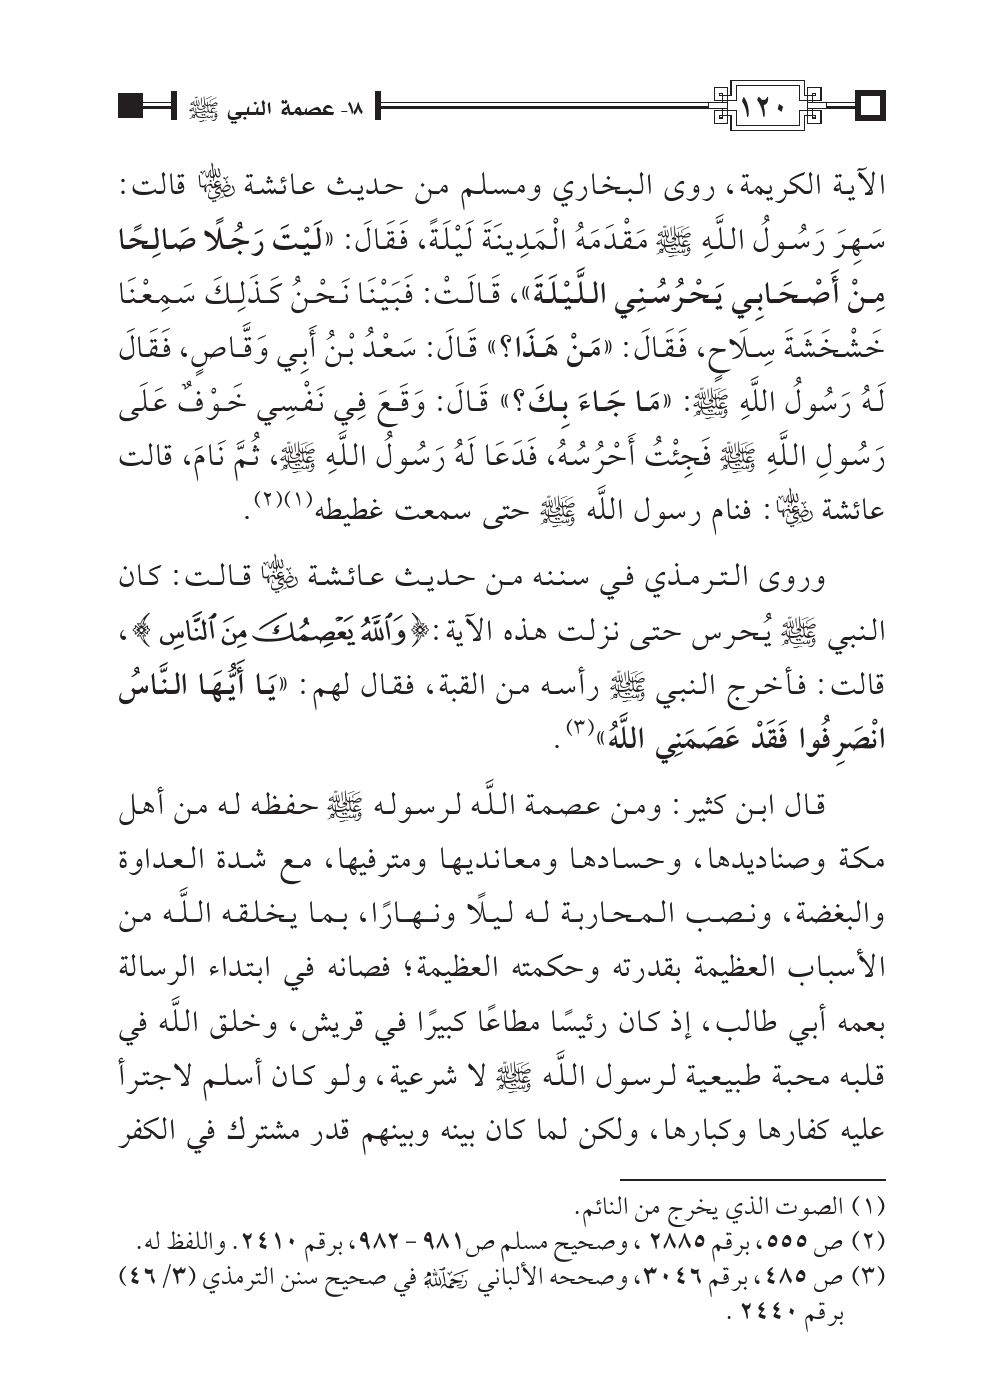 ١٢٠
١٨- عصمة النبي ﷺ
الآية الكريمة، روى البخاري ومسلم من حديث عائشة رضي الله عنها قالت:
سَهِرَ رَسُولُ اللَّهِ ﷺ مَقْدَمَهُ الْمَدِينَةَ لَيْلَةً، فَقَالَ: «لَيْتَ رَجُلًا صَالِحًا
مِنْ أَصْحَابِي يَحْرُسُنِي اللَّيْلَةَ»، قَالَتْ: فَبَيْنَا نَحْنُ كَذَلِكَ سَمِعْنَا
خَشْخَشَةَ سِلَاحٍ، فَقَالَ: «مَنْ هَذَا؟» قَالَ: سَعْدُ بْنُ أَبِي وَقَّاصٍ، فَقَالَ
لَهُ رَسُولُ اللَّهِ ﷺ: «مَا جَاءَ بِكَ؟» قَالَ: وَقَعَ فِي نَفْسِي خَوْفٌ عَلَى
رَسُولِ اللَّهِ ﷺ فَجِئْتُ أَحْرُسُهُ، فَدَعَا لَهُ رَسُولُ اللَّهِ ﷺ، ثُمَّ نَامَ، قالت
عائشة رضي الله عنها: فنام رسول اللَّه ﷺ حتى سمعت غطيطه(١)(٢).
وروى الترمذي في سننه من حديث عائشة رضي الله عنها قالت: كان
النبي ﷺ يُحرس حتى نزلت هذه الآية: ﴿وَٱللَّهُ يَعْصِمُكَ مِنَ ٱلنَّاسِ﴾،
قالت: فأخرج النبي ﷺ رأسه من القبة، فقال لهم: «يَا أَيُّهَا النَّاسُ
انْصَرِفُوا فَقَدْ عَصَمَنِي اللَّهُ»(٣).
قال ابن كثير: ومن عصمة اللَّه لرسوله ﷺ حفظه له من أهل
مكة وصناديدها، وحسادها ومعانديها ومترفيها، مع شدة العداوة
والبغضة، ونصب المحاربة له ليلًا ونهارًا، بما يخلقه اللَّه من
الأسباب العظيمة بقدرته وحكمته العظيمة؛ فصانه في ابتداء الرسالة
بعمه أبي طالب، إذ كان رئيسًا مطاعًا كبيرًا في قريش، وخلق اللَّه في
قلبه محبة طبيعية لرسول اللَّه ﷺ لا شرعية، ولو كان أسلم لاجترأ
عليه كفارها وكبارها، ولكن لما كان بينه وبينهم قدر مشترك في الكفر
(١) الصوت الذي يخرج من النائم.
(٢) ص ٥٥٥، برقم ٢٨٨٥ ، وصحيح مسلم ص٩٨١ - ٩٨٢، برقم ٢٤١٠. واللفظ له.
(٣) ص ٤٨٥، برقم ٣٠٤٦، وصححه الألباني رحمه الله في صحيح سنن الترمذي (٣/ ٤٦)
برقم ٢٤٤٠ .